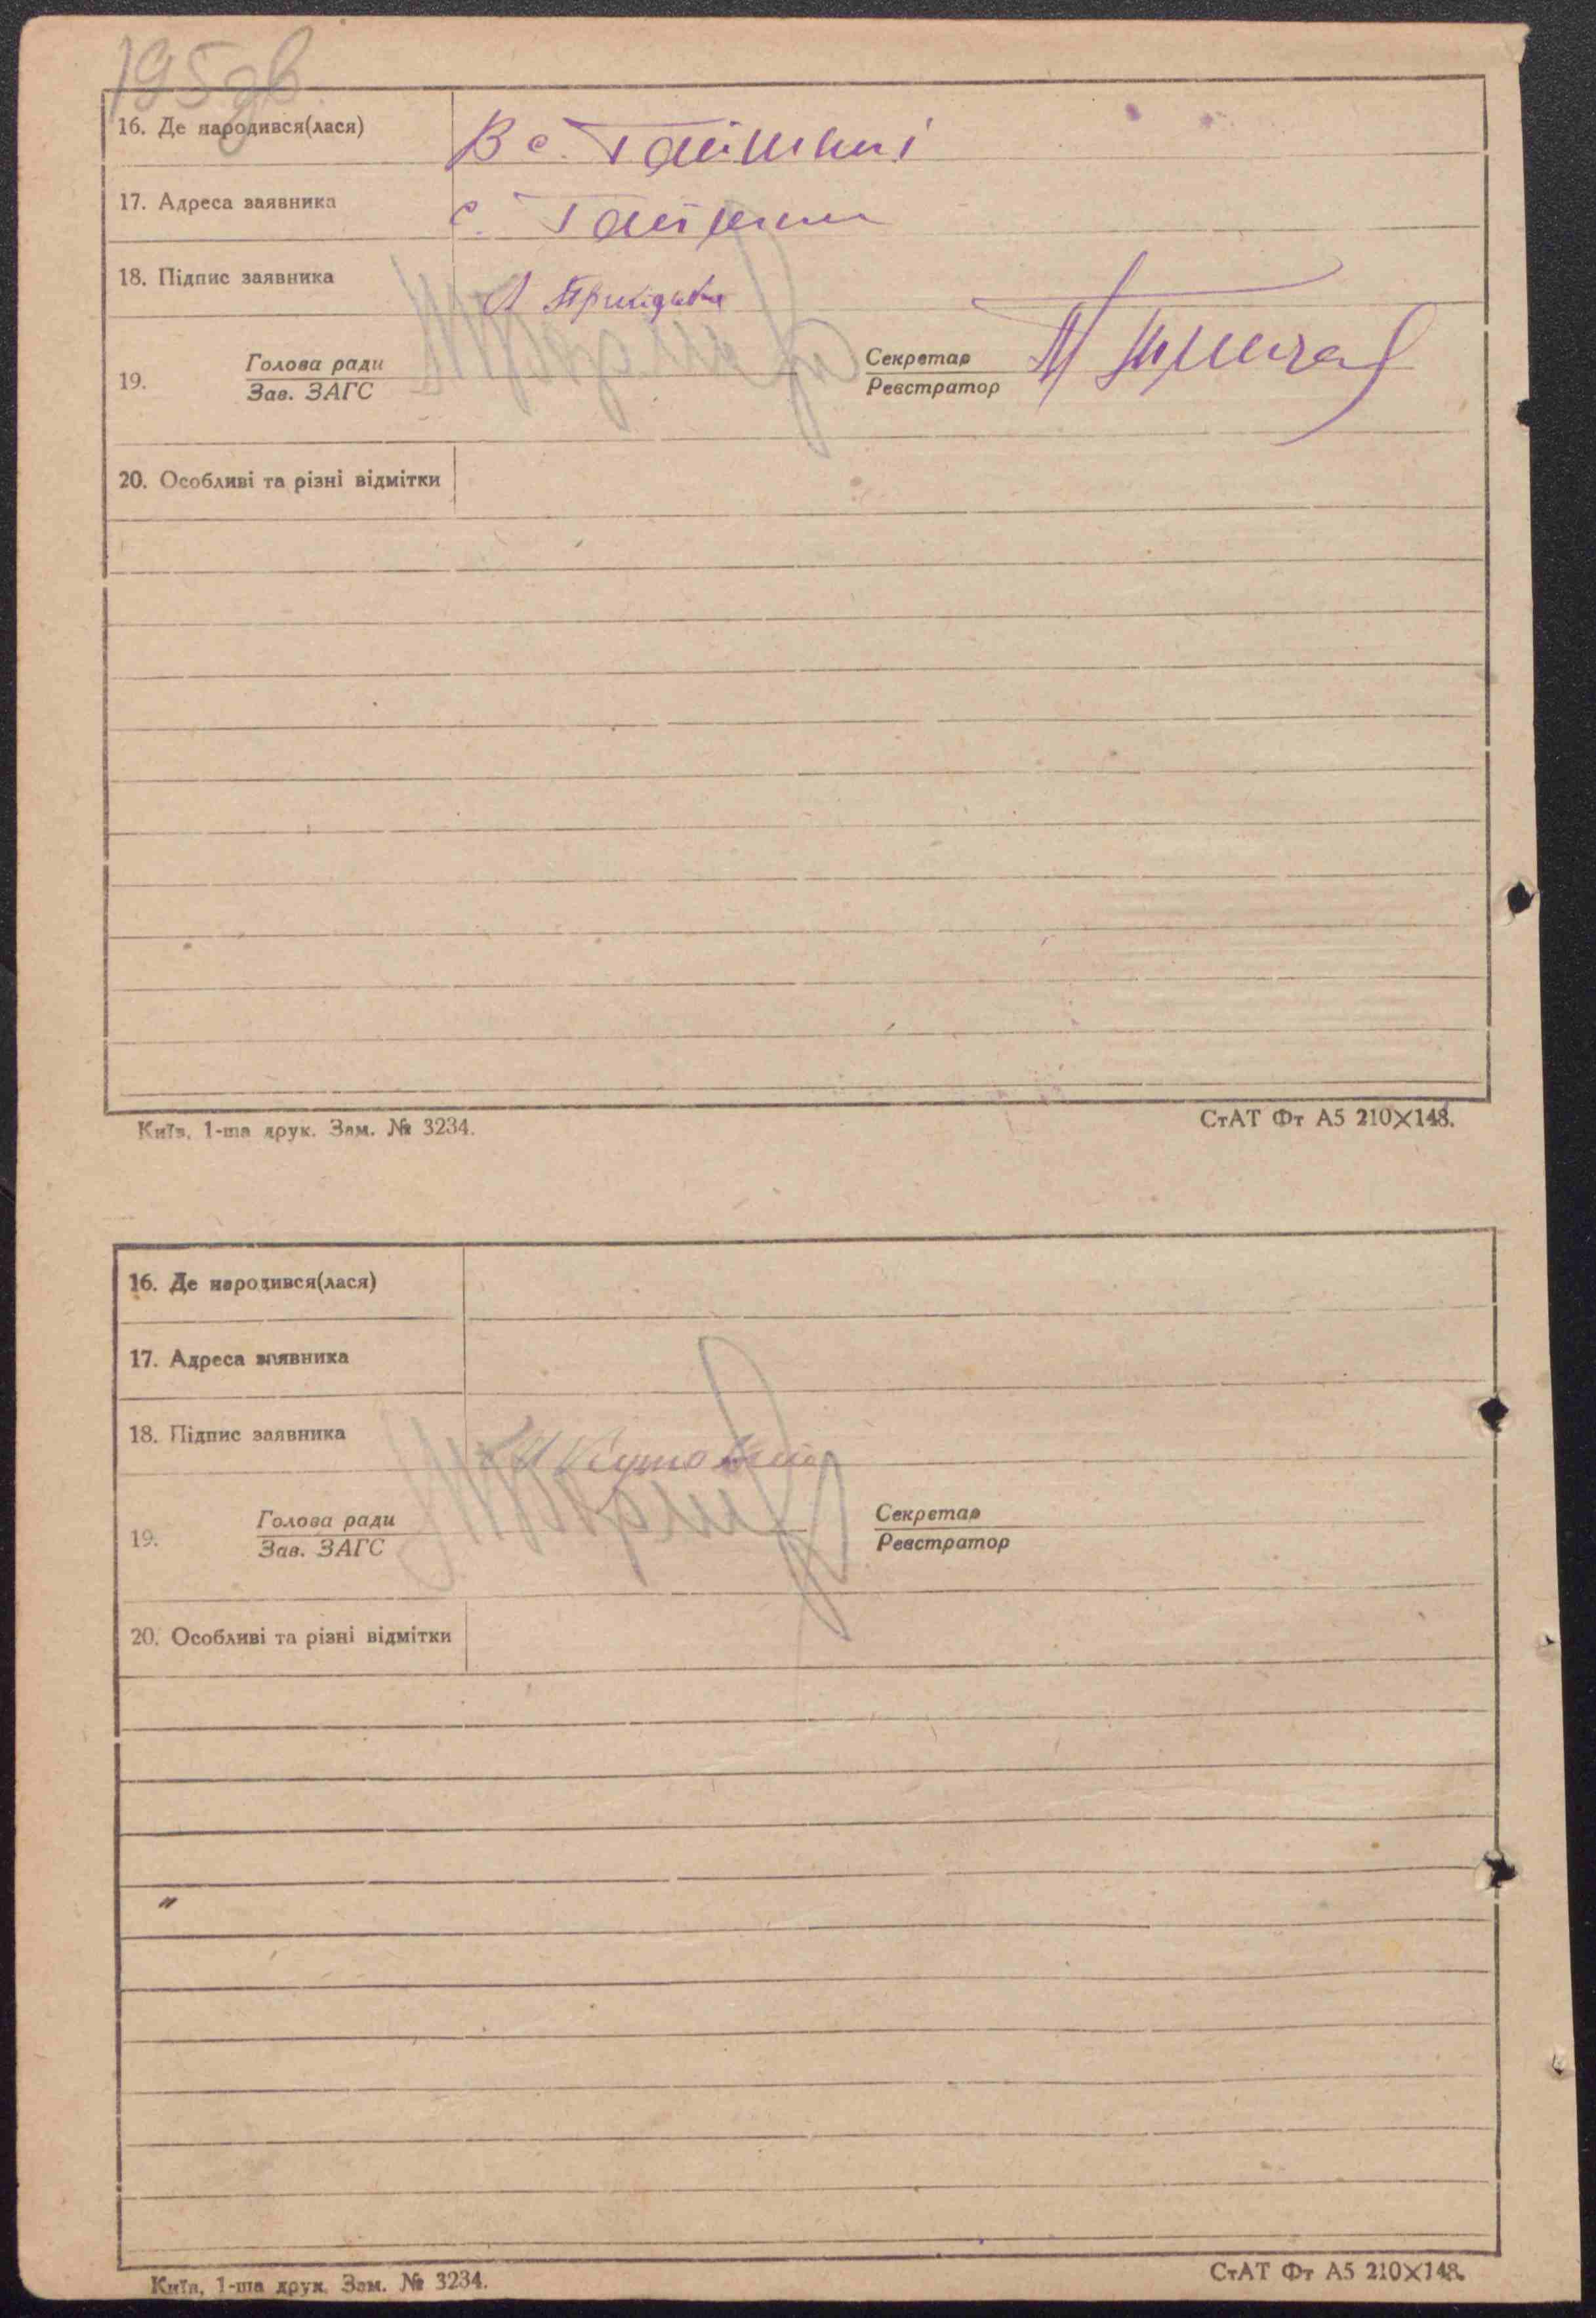 195 зв.
16. Де народився(лася) В с. Гайшині
17. Адреса заявника с. Гайшин
18. Підпис заявника
19. Голова ради
Зав. ЗАГС
Секретар
Реєстратор
20. Особливі та різні відмітки
Київ, 1-ша друк. Зам. № 3234.
СтАТ Фт А5 210×148.
16. Де народився(лася)
17. Адреса заявника
18. Підпис заявника
19. Голова ради
Зав. ЗАГС
Секретар
Реєстратор
20. Особливі та різні відмітки
Київ, 1-ша друк. Зам. № 3234.
СтАТ Фт А5 210×148.